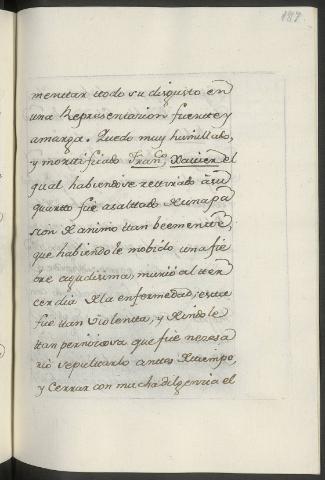 187.
mentar todo su disgusto en
una Representacion fuerte, y
amarga. Quedo muy humillado,
y mortificado Franco. Xavier el
qual habiendose retirado à su
quarto fue asaltado de una pa
sion de animo tan beemente,
que habiendole mobido una fie
bre agudisima, murió al ter
cer dia de la enfermedad; esta
fue tan violenta, y de indole
tan perniciosa que fue necesa
rio sepultarlo antes de tiempo,
y cerrar con mucha diligencia el